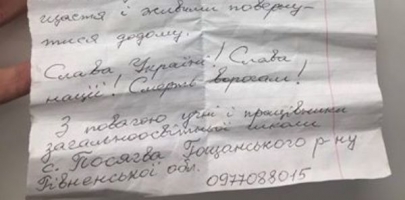 щастя і живими поверну-
тися додому.
Слава Україні! Слава
нації! Смерть ворогам!
З повагою учні і працівники
загальноосвітньої школи
с. Посягва Гощанського р-ну
Рівненської обл.
0977088015